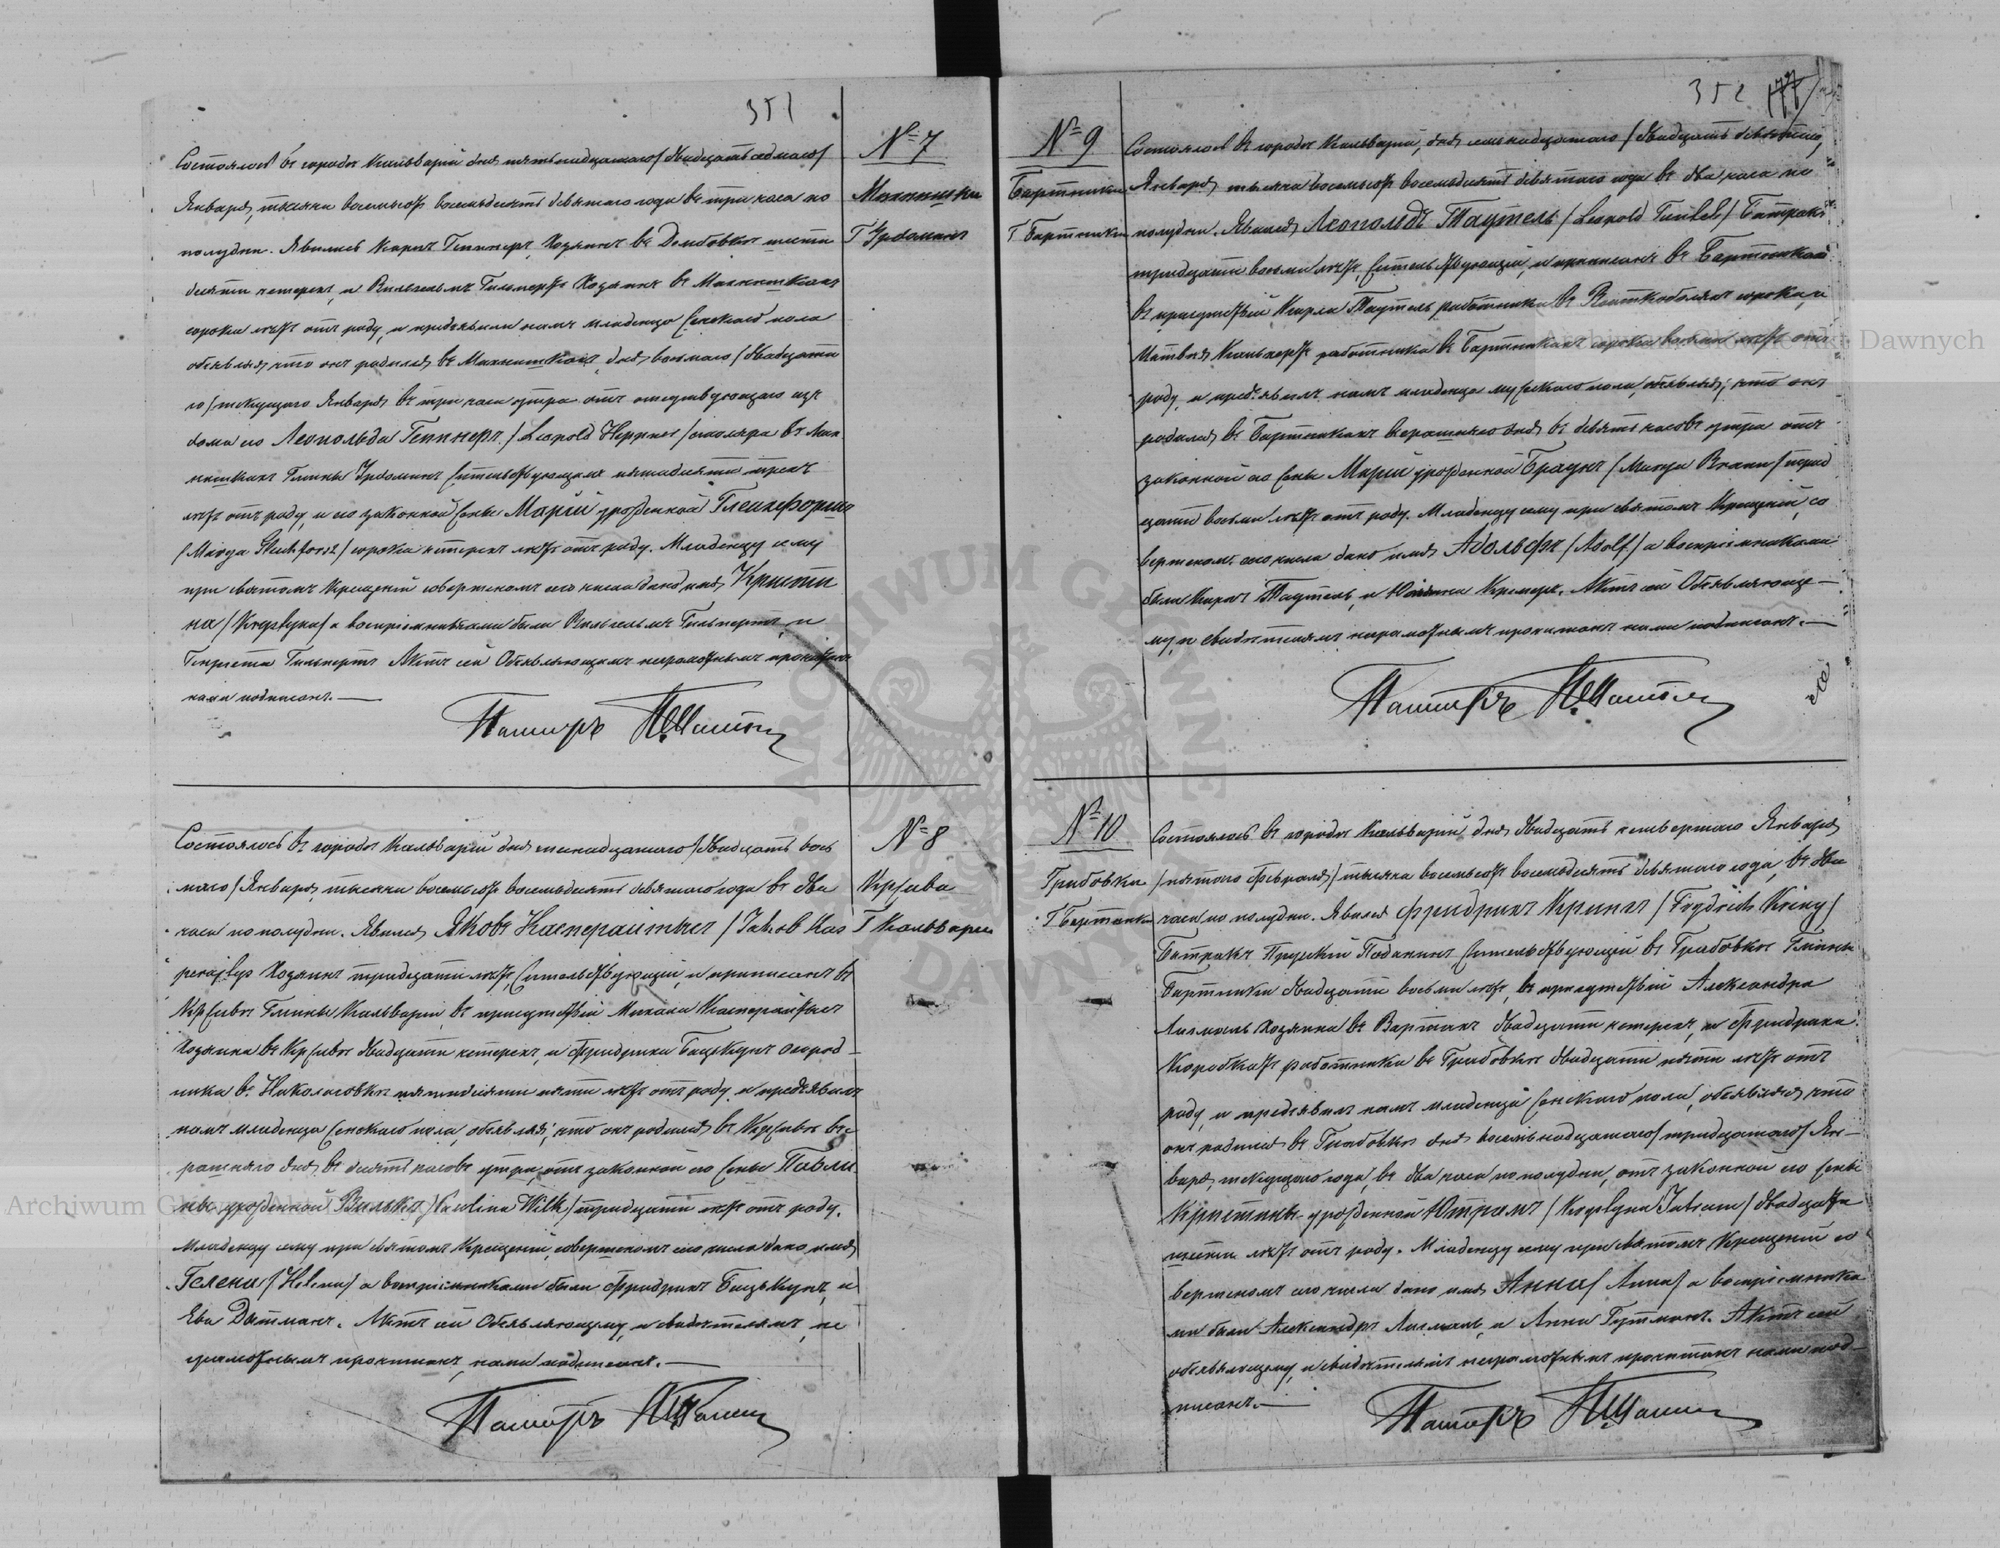 351
№ 7
Состоялось въ городѣ Кальваріи дня пятнадцатаго /двадцать седьмаго/
Января, тысяча восемьсотъ восемьдесятъ девятаго года въ три часа по
полудни. Явились Карлъ Геппнеръ, Хозяинъ въ Домбовкѣ шести
десяти четырехъ, и Вильгельмъ Гильпертъ Хозяинъ въ
сорока лѣтъ отъ роду, и предъявили намъ младенца женскаго пола
объявляя, что онъ родился въ дня восьмаго /двадцата
го/ текущаго Января въ три часа утра отъ отсутствующаго изъ
дома его Леопольда Геппнеръ /Leopold Heppner/ столяра въ
Гмины Урдоминъ жительствующаго пятидесяти трехъ
лѣтъ отъ роду, и его законной жены Маріи урожденной
/Marya / сорока четырехъ лѣтъ отъ роду. Младенцу сему
при святомъ Крещеніи совершеномъ сего числа дано имя Кристи
на /Krystyna/ а воспріемниками были Вильгельмъ Гильпертъ, и
Генріета Гильпертъ. Актъ сей Объявляющимъ неграмотнымъ прочитанъ
нами подписанъ.—
Пасторъ
Г Урдоминъ
№ 8
Кржива
Г Кальварія
Состоялось въ городѣ Кальваріи дня шестнадцатаго /двадцать вось
маго/ Января, тысяча восемьсотъ восемьдесятъ девятаго года въ два
часа по полудни. Явился Яковъ Касперайтысъ /Jakob Kas
perajtys Хозяинъ тридцати лѣтъ, жительствующій, и приписанъ въ
Крживѣ Гмины Кальварія, въ присутствіи Михаила Касперайтыса
Хозяина въ Крживѣ двадцати четырехъ, и Фридриха Бацькунъ огород-
ника въ Николаевкѣ пятидесяти пяти лѣтъ отъ роду, и предъявилъ
намъ младенца женскаго пола, объявляя, что онъ родился въ Крживѣ вче
рашняго дня въ десять часовъ утра, отъ законной его жены Павли
ны урожденной Вилькъ /Paulina Wilk/ тридцати лѣтъ отъ роду.
Младенцу сему при святомъ Крещеніи, совершеномъ сего числа дано имя
Гелена /Helena/ а воспріемниками были Фридрихъ Бацькунъ, и
Ева Дитманъ. Актъ сей Объявляющему, и свидѣтелямъ, не
грамотнымъ прочитанъ, нами подписанъ.—
Пасторъ
352
№ 9
Бартники
Г Бартники
Состоялось въ городѣ Кальваріи, дня семнадцатаго /двадцать девятаго/
Января, тысяча восемьсотъ восемьдесятъ девятаго года въ два часа по
полудни. Явился Леопольдъ Таутель /Leopold Tautel/ Батракъ
тридцати восьми лѣтъ, жительствующій, и приписанъ въ
въ присутствіи Карла Таутель работника въ сорока, и
Матвѣя работника въ Бартникахъ сорока восьми лѣтъ отъ
роду, и предъявилъ намъ младенца мужескаго пола, объявляя, что онъ
родился въ Бартникахъ вчерашняго дня въ девять часовъ утра отъ
законной его жены Маріи урожденной Браунъ /Marya Braun/ трид
цати восьми лѣтъ отъ роду. Младенцу сему при святомъ Крещеніи, со
вершеномъ сего числа дано имя Адольфъ /Adolf/ а воспріемниками
были Карлъ Таутель, и Кремеръ. Актъ сей Объявляюще-
му, и свидѣтелямъ неграмотнымъ прочитанъ нами подписанъ.—
Пасторъ
№ 10
Грабовка
Г Бартники
Состоялось въ городѣ Кальваріи, дня двадцать четвертаго Января
/пятаго Февраля/ тысяча восемьсотъ восемьдесятъ девятаго года, въ два
часа по полудни. Явился Фридрихъ Крингъ /Frydrich Kring/
Батракъ Прускій Подданинъ жительствующій въ Грабовкѣ Гмины
Бартники двадцати восьми лѣтъ, въ присутствіи Александра
Хозяина въ двадцати четырехъ, и Фридриха
работника въ Грабовкѣ двадцати пяти лѣтъ отъ
роду, и предъявилъ намъ младенца женскаго пола, объявляя что
онъ родился въ Грабовкѣ дня восемнадцатаго /тридцатаго/ Ян-
варя, текущаго года, въ два часа по полудни, отъ законной его жены
Кристины урожденной Ютрамъ /Krystyna Jutram/ двадцати
шести лѣтъ отъ роду. Младенцу сему при святомъ Крещеніи со
вершеномъ сего числа дано имя Анна /Anna/ а воспріемника
ми были Александръ и Анна Гутманъ. Актъ сей
объявляющему, и свидѣтелямъ неграмотнымъ прочитанъ нами под-
писанъ.—
Пасторъ
Archiwum Główne Akt Dawnych